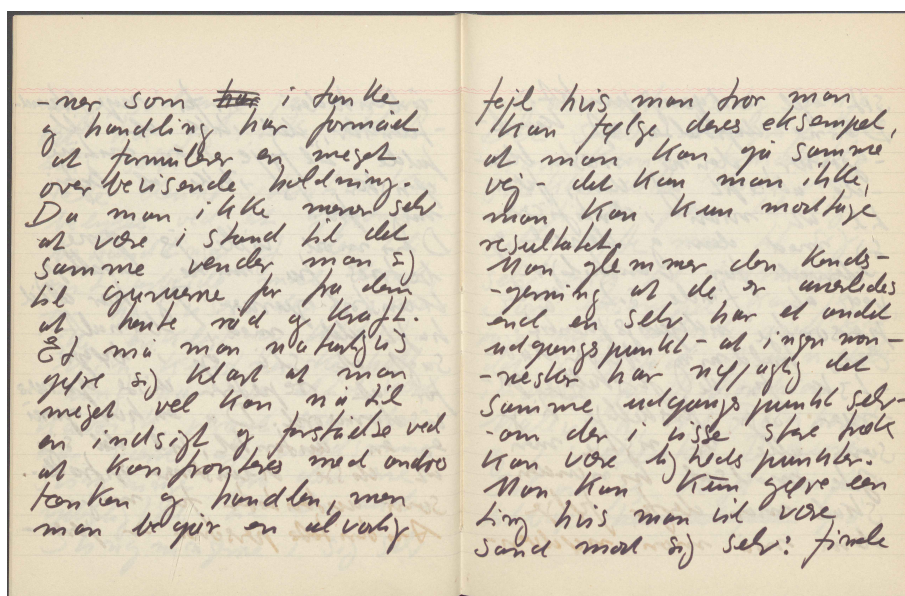 -ner som har i tanke
og handling har formået
at formulerer en meget
overbevisende holdning.
Da man ikke mener selv
at være i stand til det
samme vender man sig
til guruerne for fra dem
at hente råd og kraft.
Ét må man naturligvis
gøre sig klart at man
meget vel kan nå til
en indsigt og forståelse ved
at konfronteres med andres
tanken og handlen, men
man begår en alvorlig
fejl hvis man tror man
kan følge deres eksempel,
at man kan gå samme
vej - det kan man ikke,
man kan kun modtage
resultatet.
Man glemmer den kends-
-gerning at de er anerledes
end en selv har et andet
udgangspunkt - at ingen men-
-nesker har nøjagtig det
samme udgangspunkt selv-
-om der i visse store træk
kan være lighedspunkter.
Man kan kun gøre een
ting hvis man vil være
sand mod sig selv: finde